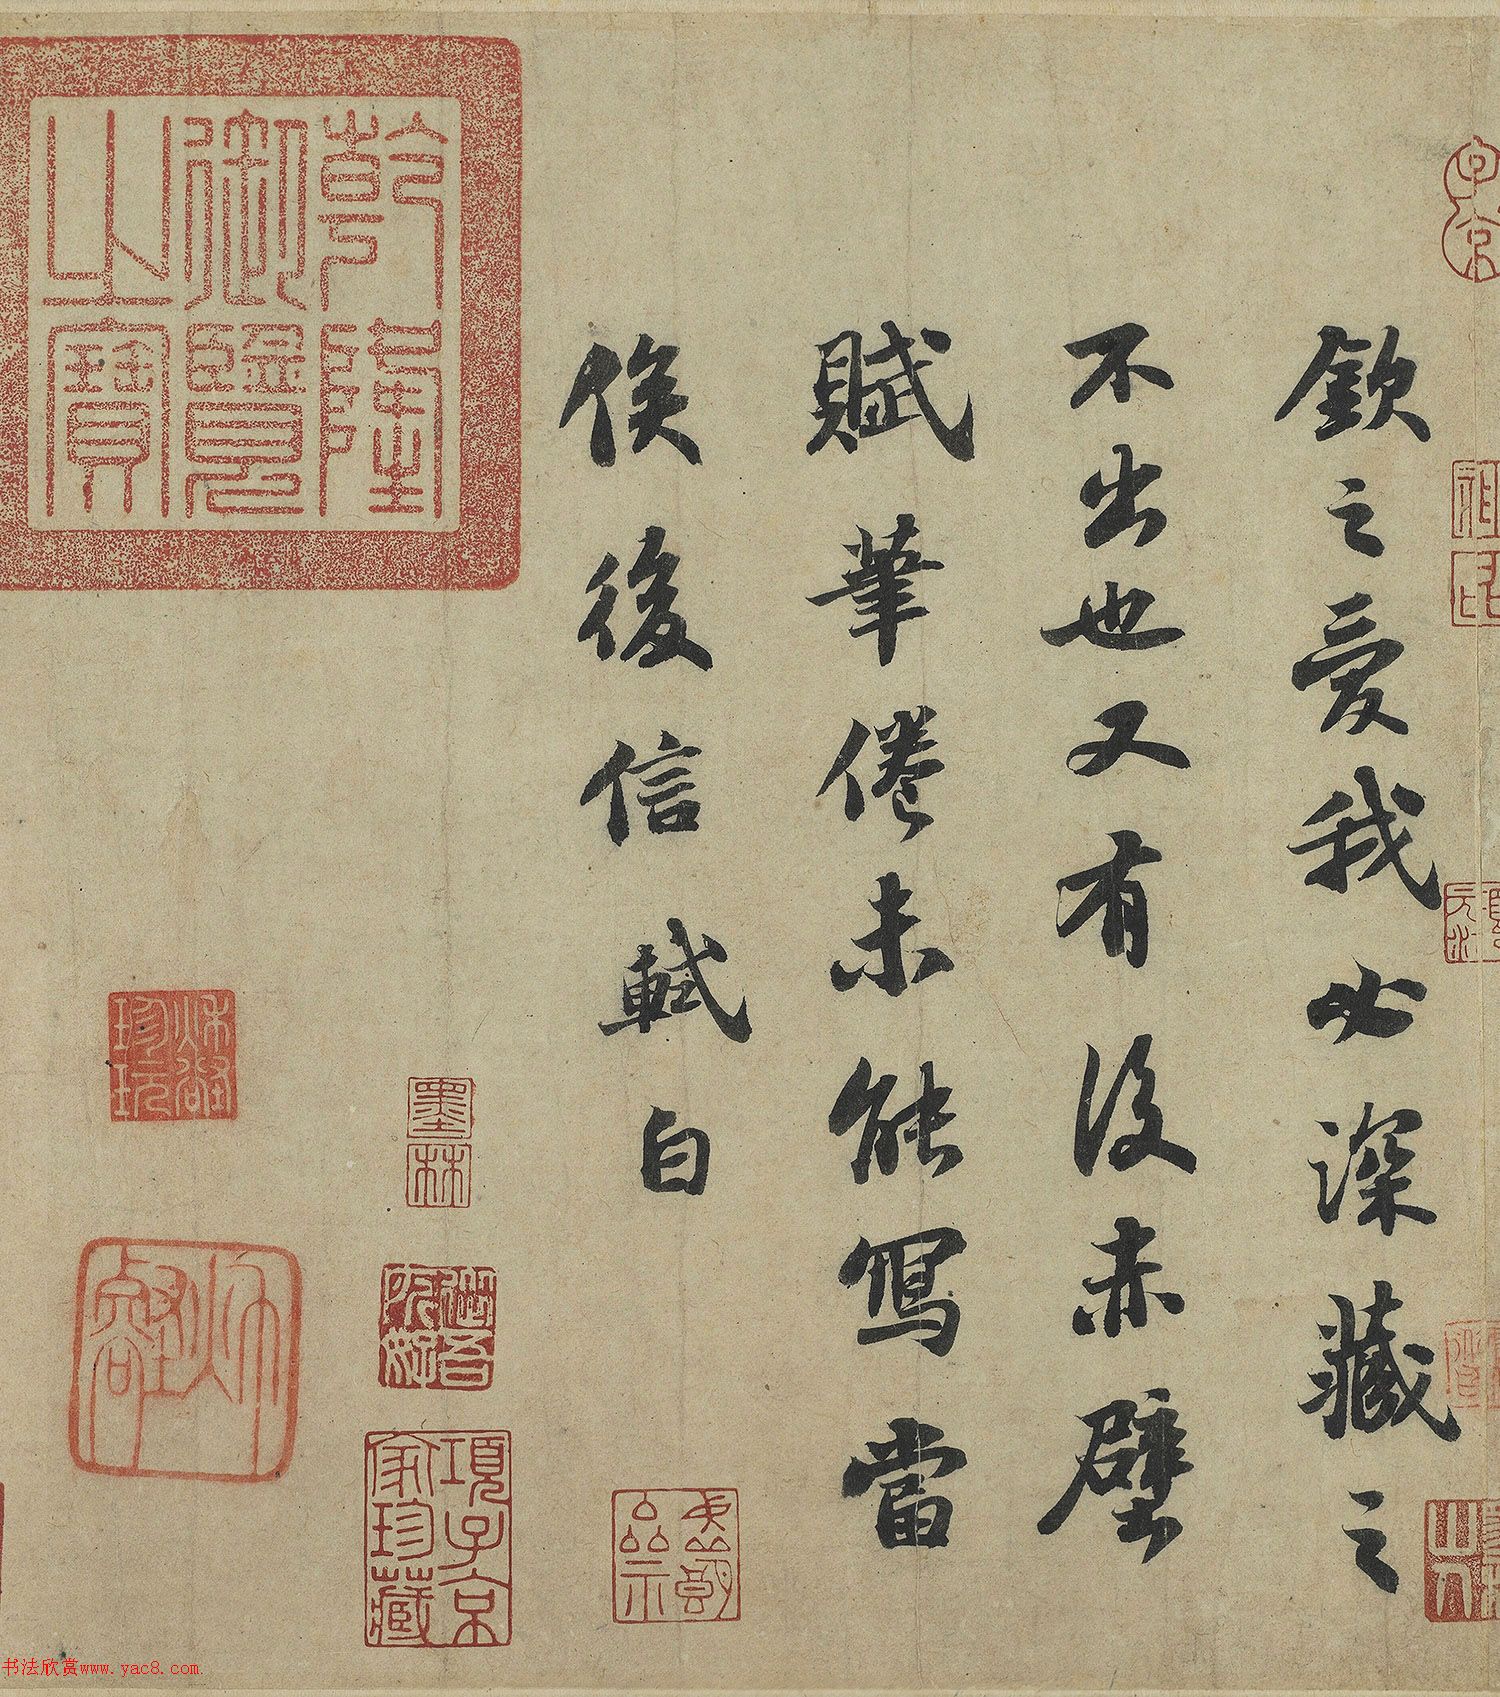 欽之愛我必深藏之
不出也又有後赤壁
賦筆倦未能寫當
俟後信軾白
乾隆
御覽
之寶
子京
墨林
項子京
家珍藏
珍玩
书法欣赏www.yac8.com